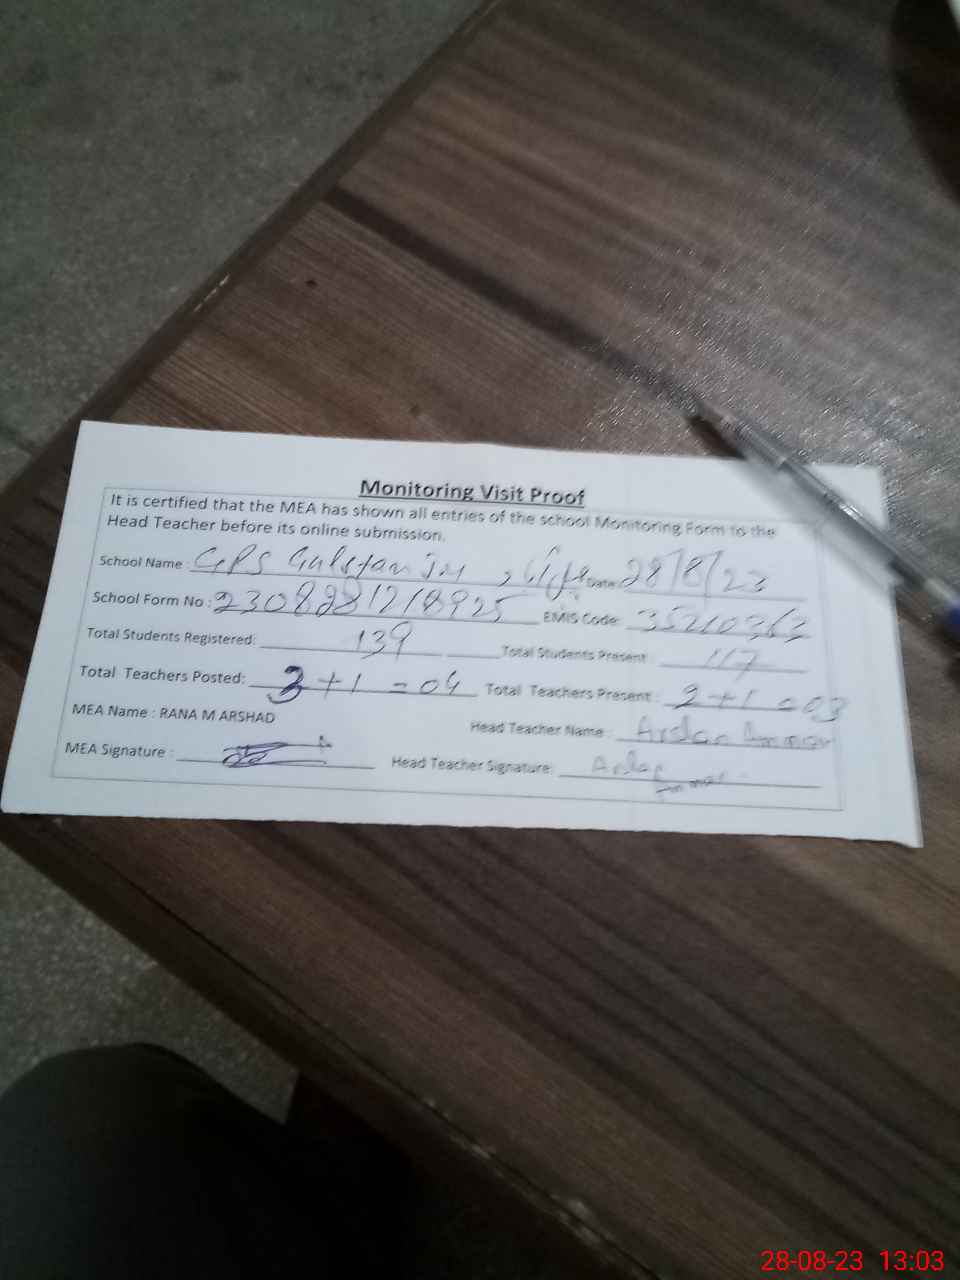 Monitoring Visit Proof
It is certified that the MEA has shown all entries of the school Monitoring Form to the
Head Teacher before its online submission.
School Name : GPS Gulstan Date: 28/8/23
School Form No : EMIS Code: 35210363
Total Students Registered: 139 Total Students Present : 117
Total Teachers Posted: 3+1 = 04 Total Teachers Present : 2+1 = 03
MEA Name : RANA M ARSHAD Head Teacher Name : Arslan
MEA Signature : Head Teacher Signature: Arslan
28-08-23 13:03